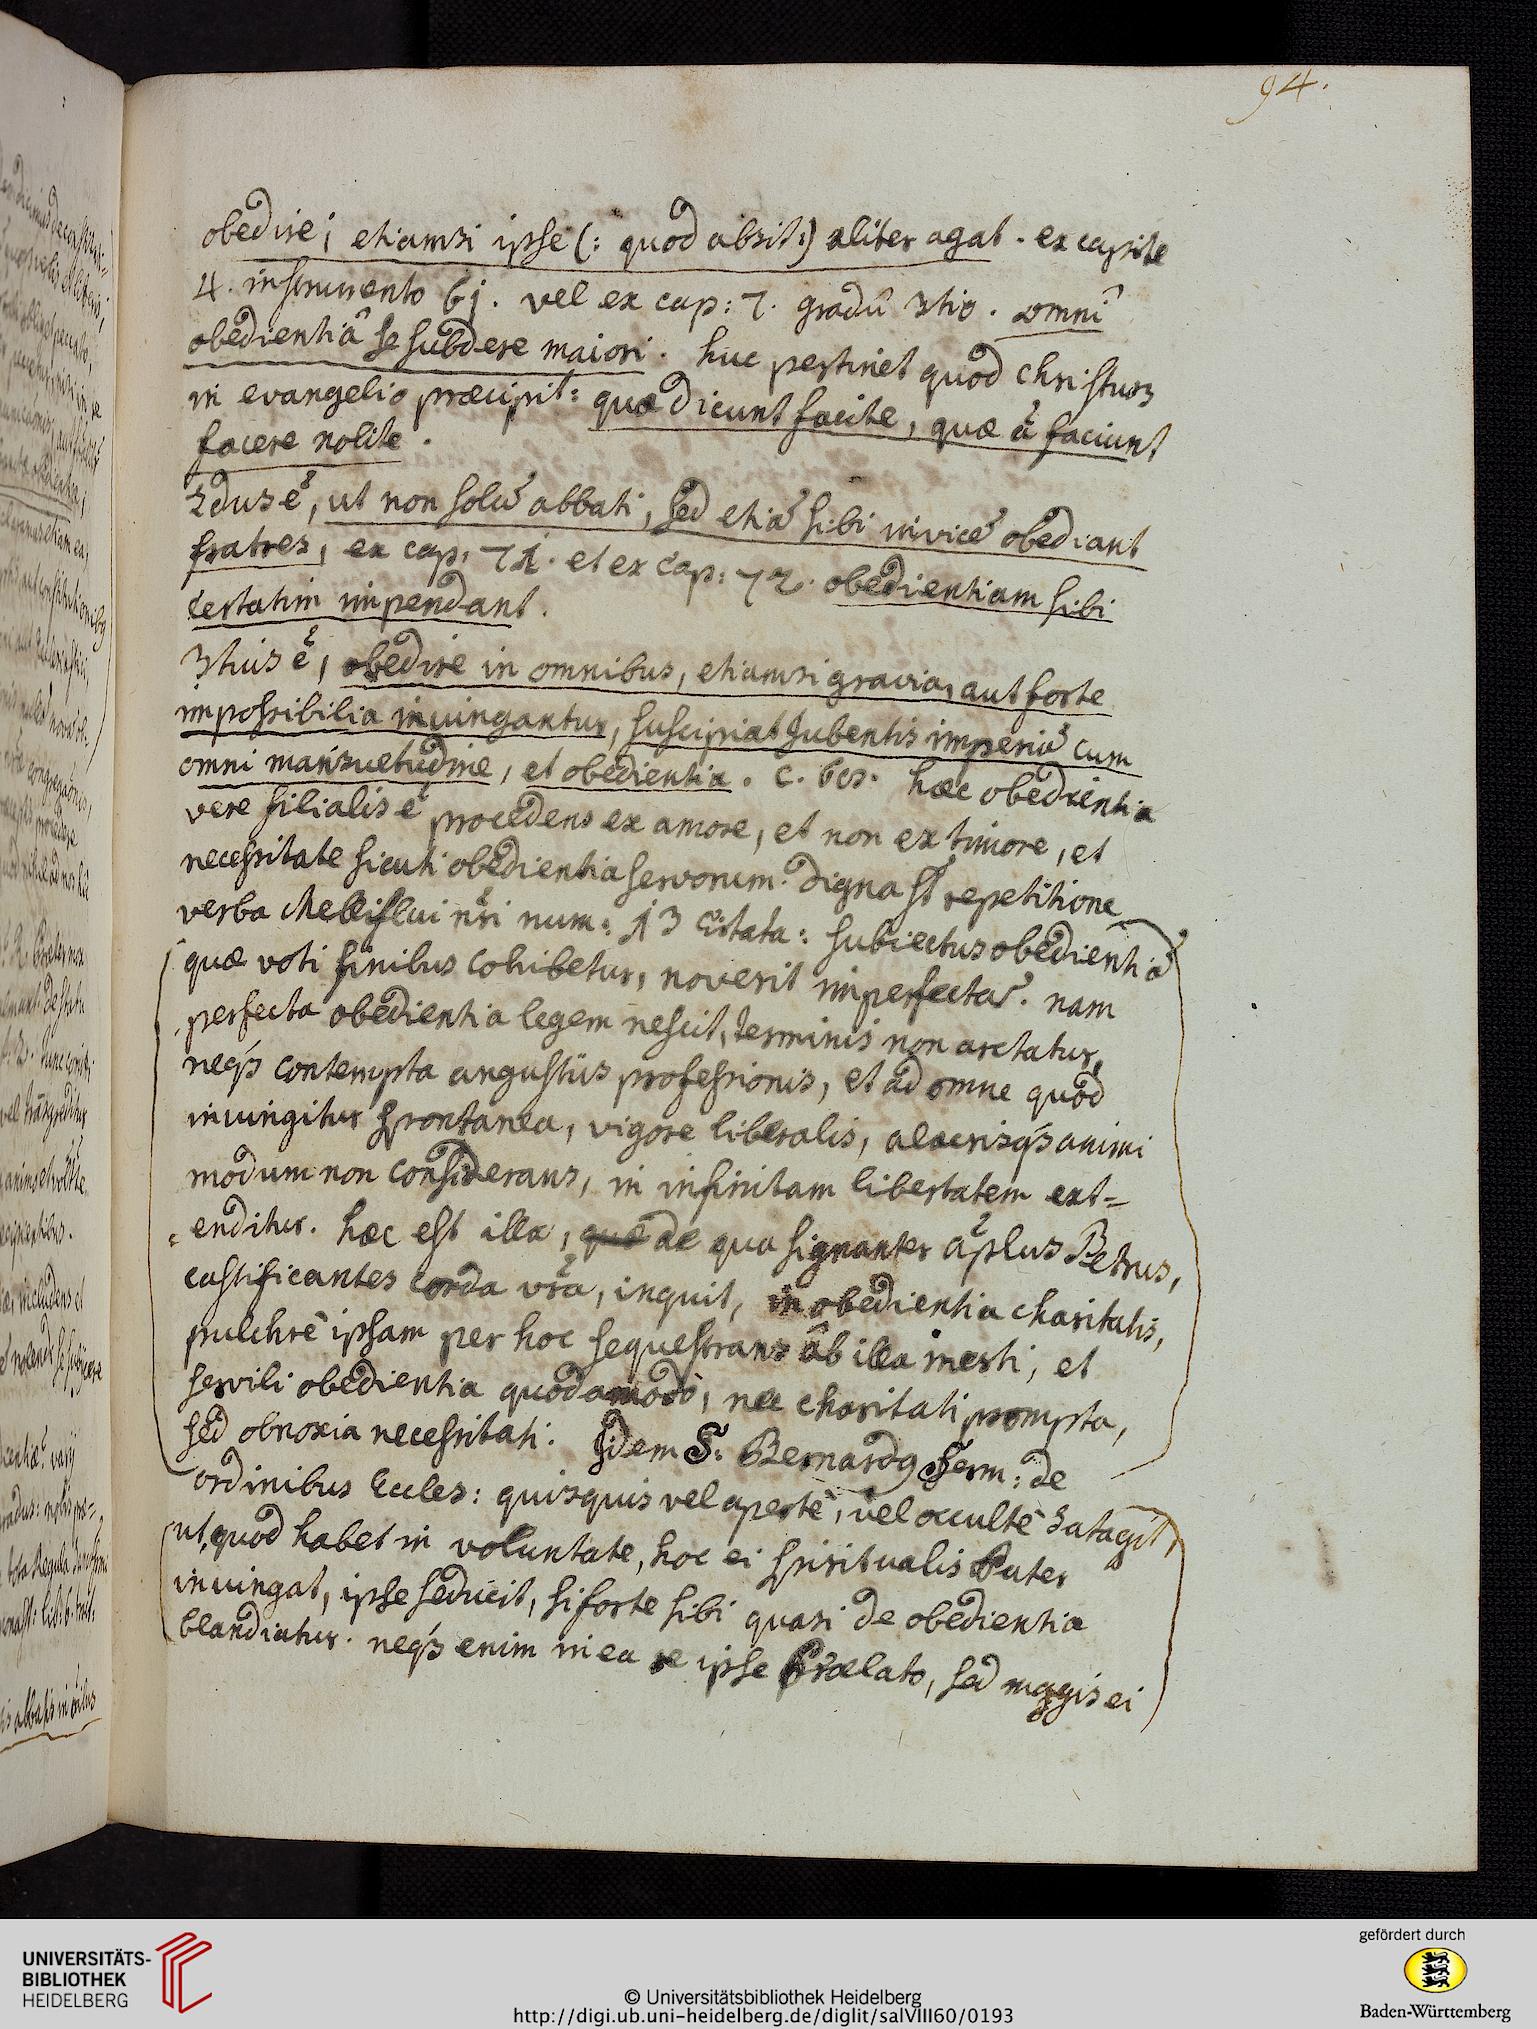 94.
obedire; etiamsi ipse (: quod absit:) aliter agat. ex capite
4. instrumento 61. vel ex cap: 7. gradu 3tio. omni
obedientiâ se subdere maiori. huc pertinet quod Christus
in evangelio præcipit: quæ dicunt facite, quæ ã faciunt
facere nolite.
2dus ẽ, ut non solũ abbati, sed etiã sibi invicẽ obediant
fratres, ex cap: 71. et ex cap: 72. obedientiam sibi
certatim impendant.
3tius ẽ, obedire in omnibus, etiamsi gravia, aut forte
impossibilia iniungantur, suscipiat Jubentis imperiũ cum
omni mansuetudine, et obedientia. c. 68. hæc obedientia
vere filialis ẽ procedens ex amore, et non ex timore, et
necessitate sicuti obedientia servorum. digna st repetitione
verba Melliflui nr̃i num: 13 citata: subiectus obedientiã
quæ voti finibus cohibetur, noverit imperfectã. nam
perfecta obedientia legem nescit, terminis non arctatur,
neqs contempta angustiis professionis, et ad omne quod
iniungitur spontanea, vigore liberalis, alacrisqs animi
modum non considerans, in infinitam libertatem ext-
enditur. hæc est illa, quæ de qua signanter ap̃lus Petrus,
castificantes corda vr̃a, inquit, in obedientia charitatis,
pulchrè ipsam per hoc sequestrans ab illa inerti, et
servili obedientia quodamodò, nec charitati prompta,
sed obnoxia necessitati. Idem S: Bernardg Serm: de
ordinibus Eccles: quisquis vel apertè, vel occultè satagit,
ut, quod habet in voluntate, hoc ei spiritualis Pater
iniungat, ipse seducit, si forte sibi quasi de obedientia
blandiatur. neqs enim in ea re ipse Prælato, sed magis ei
UNIVERSITÄTS-
BIBLIOTHEK
HEIDELBERG
© Universitätsbibliothek Heidelberg
http://digi.ub.uni-heidelberg.de/diglit/salVIII60/0193
gefördert durch
Baden-Württemberg